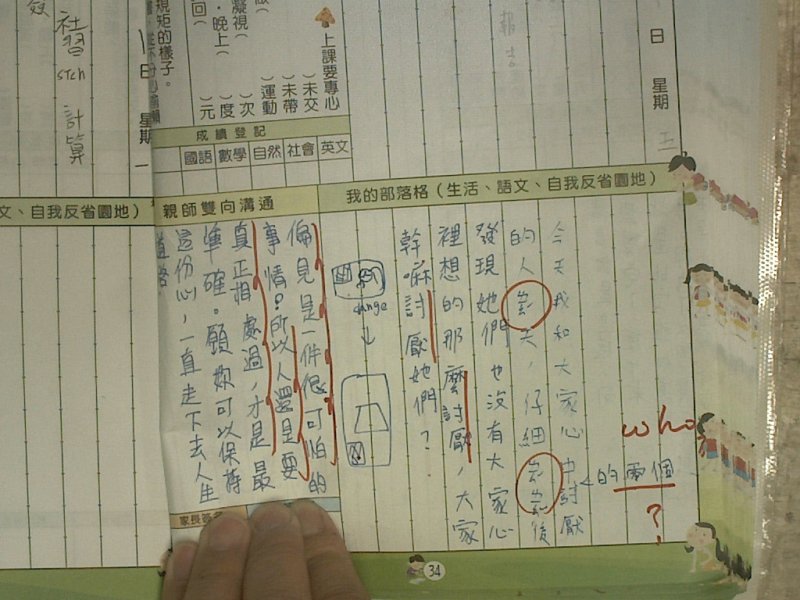 日 星期 五
報告
上課要專心
)未交
)未帶
)運動
)次
)度
)元
規矩的樣子。
凝視(
．晚上(
回(
成績登記
國語 數學 自然 社會 英文
我的部落格(生活、語文、自我反省園地)
今天我和大家心中討厭
的兩個
who
?
的人天，仔細後
發現她們也沒有大家心
裡想的那麼討厭，大家
幹嘛討厭她們？
change
親師雙向溝通
偏見是一件很可怕的
事情。所以人還是要
真正相處過，才是最
準確。願妳可以保持
這份心，一直走下去人生
道路
家長簽名
34
日 星期 一
社習
計算
文、自我反省園地)